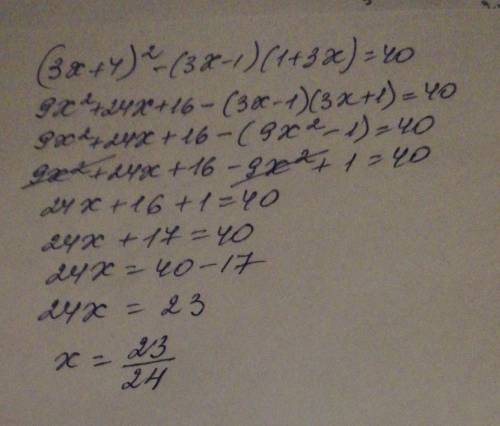 (3x+4)² - (3x-1)(1+3x) = 40
9x²+24x+16-(3x-1)(3x+1)=40
9x²+24x+16-(9x²-1)=40
9x²+24x+16-9x²+1=40
24x+16+1=40
24x+17=40
24x=40-17
24x=23
x=23/24